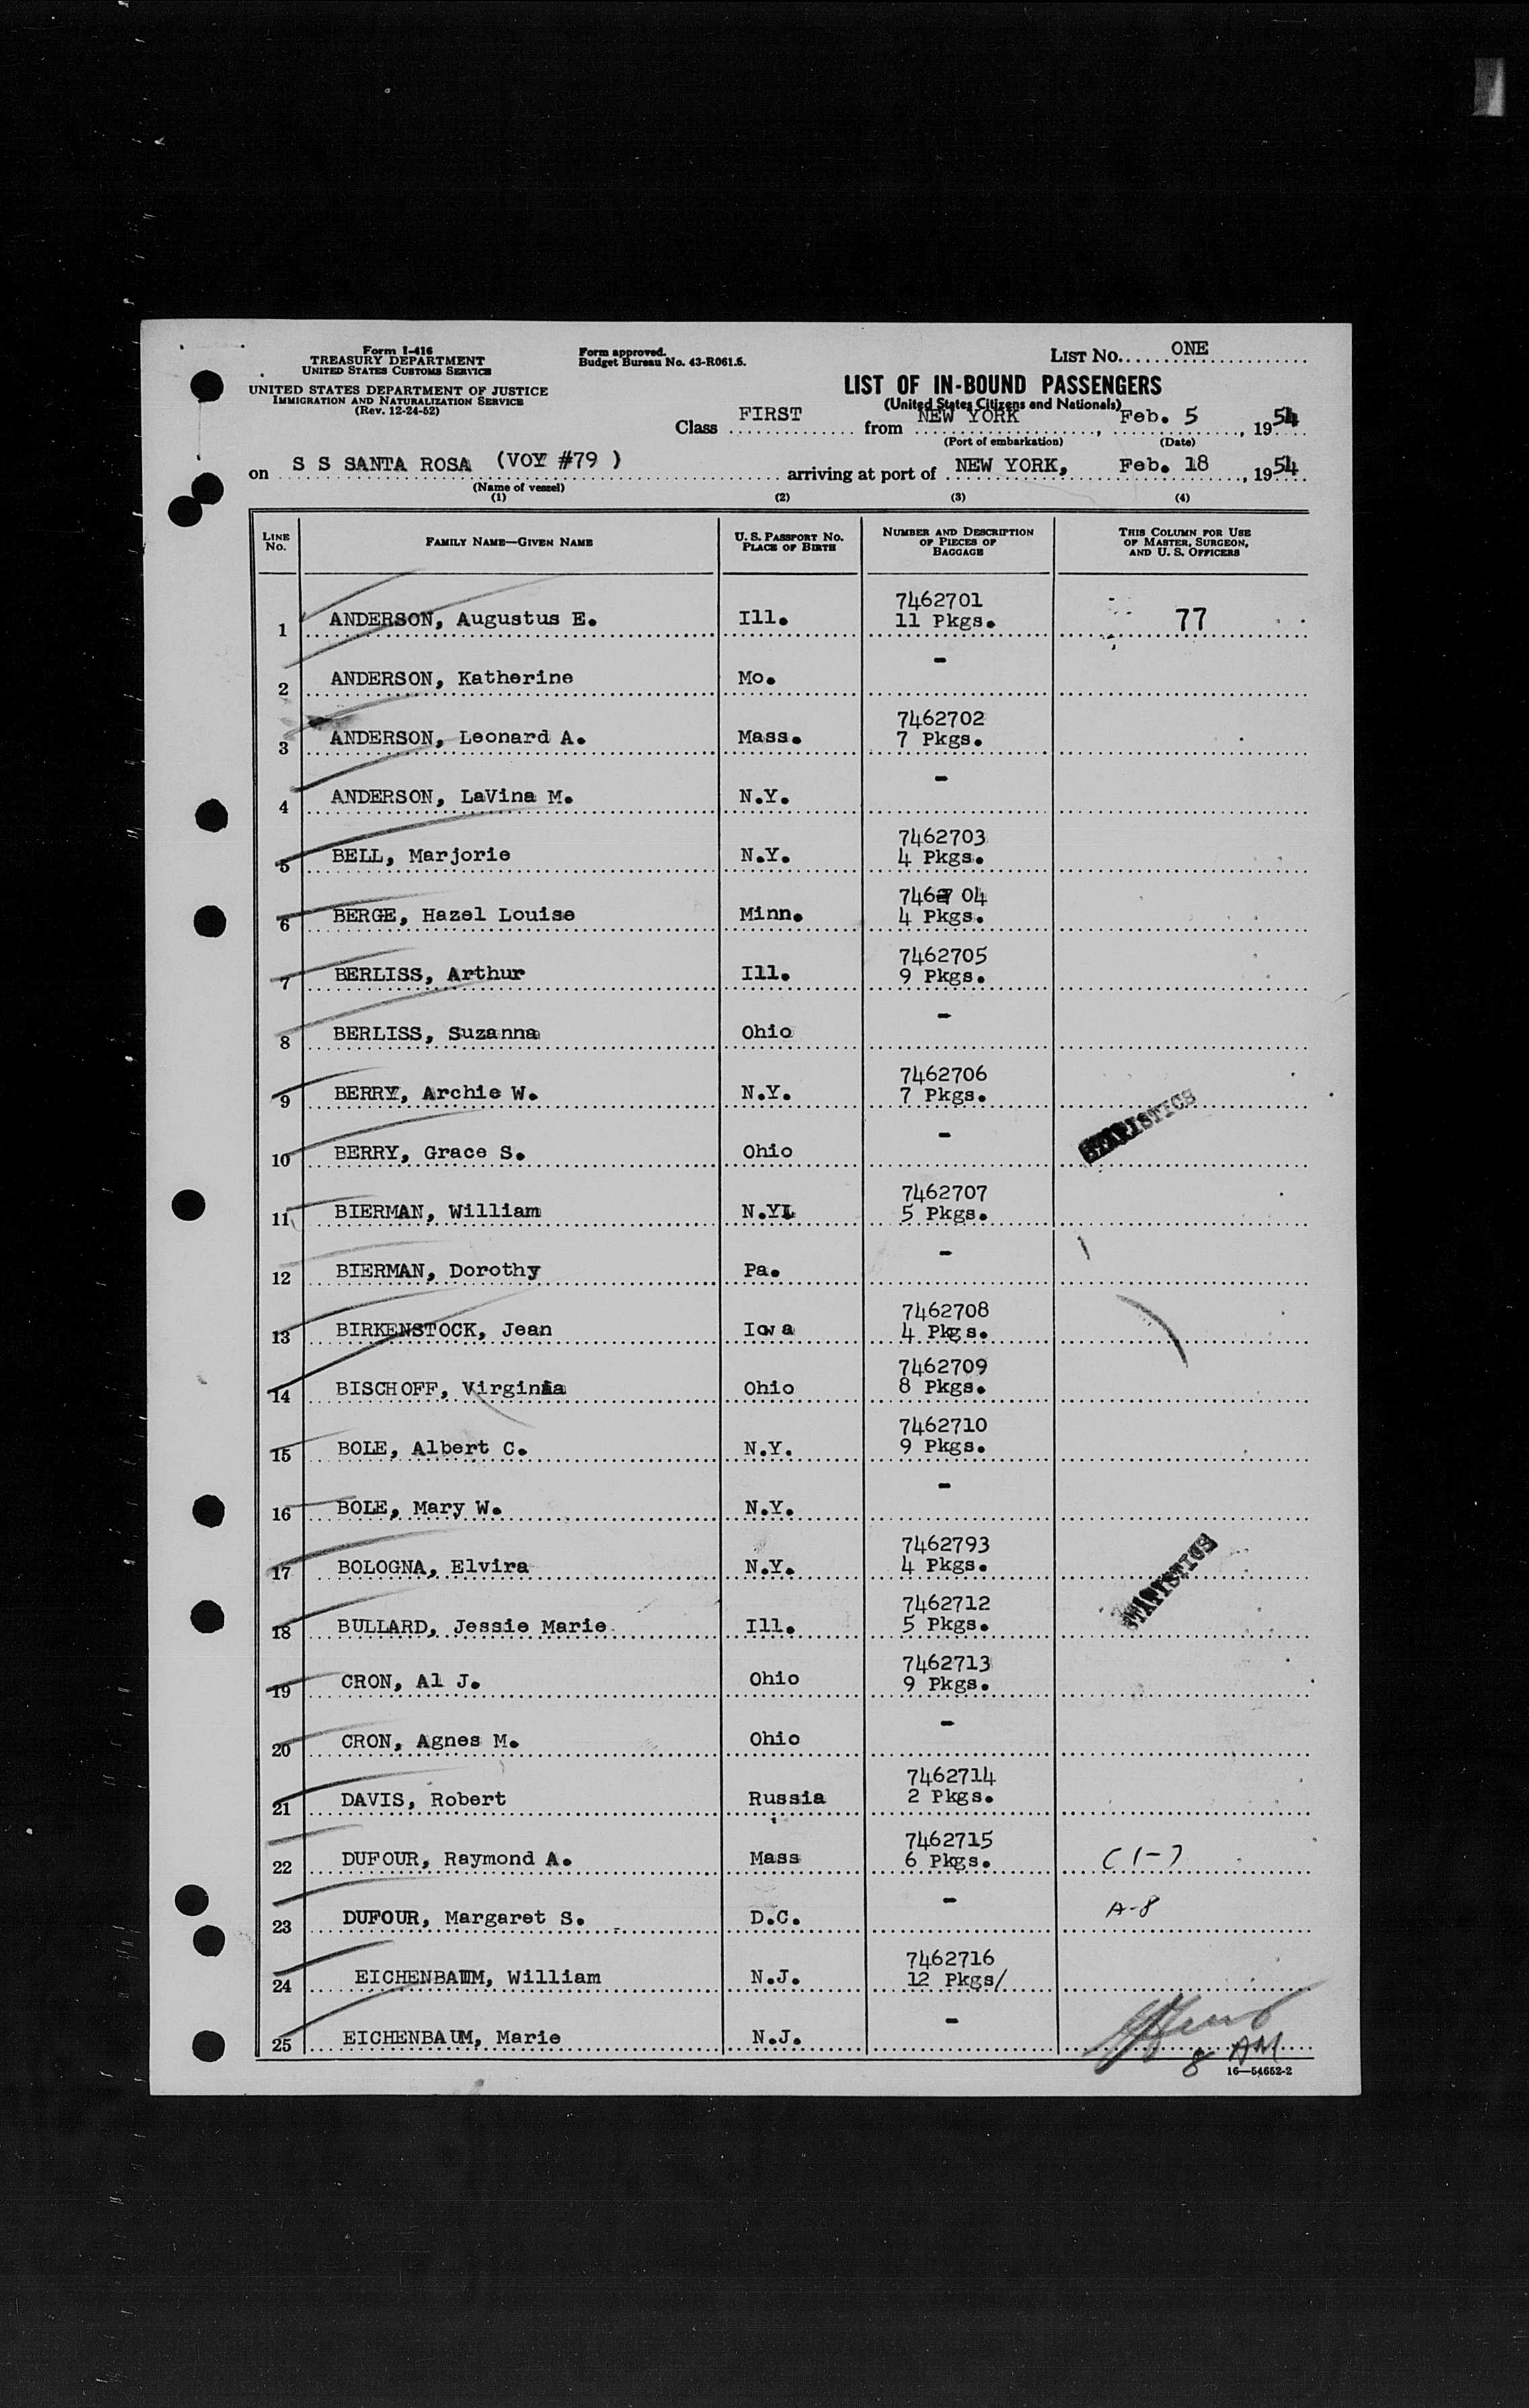 Form I-416
TREASURY DEPARTMENT
UNITED STATES CUSTOMS SERVICE
UNITED STATES DEPARTMENT OF JUSTICE
IMMIGRATION AND NATURALIZATION SERVICE
(Rev. 12-24-52)
Form approved.
Budget Bureau No. 43-R061.5.
LIST No. ONE
LIST OF IN-BOUND PASSENGERS
(United States Citizens and Nationals)
Class FIRST from NEW YORK, Feb. 5, 1954
(Port of embarkation) (Date)
on S S SANTA ROSA (VOY #79 ) arriving at port of NEW YORK, Feb. 18, 1954
(Name of vessel)
(1) (2) (3) (4)
LINE No. FAMILY NAME—GIVEN NAME U. S. PASSPORT No. PLACE OF BIRTH NUMBER AND DESCRIPTION OF PIECES OF BAGGAGE THIS COLUMN FOR USE OF MASTER, SURGEON, AND U. S. OFFICERS
7462701
1 ANDERSON, Augustus E. Ill. 11 Pkgs. 77
2 ANDERSON, Katherine Mo. -
7462702
3 ANDERSON, Leonard A. Mass. 7 Pkgs.
4 ANDERSON, LaVina M. N.Y. -
7462703
5 BELL, Marjorie N.Y. 4 Pkgs.
7462704
6 BERGE, Hazel Louise Minn. 4 Pkgs.
7462705
7 BERLISS, Arthur Ill. 9 Pkgs.
8 BERLISS, Suzanna Ohio -
7462706
9 BERRY, Archie W. N.Y. 7 Pkgs.
STATISTICS
10 BERRY, Grace S. Ohio -
7462707
11 BIERMAN, William N.Y. 5 Pkgs.
12 BIERMAN, Dorothy Pa. -
7462708
13 BIRKENSTOCK, Jean Iowa 4 Pkgs.
7462709
14 BISCHOFF, Virginia Ohio 8 Pkgs.
7462710
15 BOLE, Albert C. N.Y. 9 Pkgs.
16 BOLE, Mary W. N.Y. -
7462793
17 BOLOGNA, Elvira N.Y. 4 Pkgs.
STATISTICS
7462712
18 BULLARD, Jessie Marie Ill. 5 Pkgs.
7462713
19 CRON, Al J. Ohio 9 Pkgs.
20 CRON, Agnes M. Ohio -
7462714
21 DAVIS, Robert Russia 2 Pkgs.
7462715
22 DUFOUR, Raymond A. Mass 6 Pkgs. C 1-7
23 DUFOUR, Margaret S. D.C. - A-8
7462716
24 EICHENBAUM, William N.J. 12 Pkgs/
25 EICHENBAUM, Marie N.J. -
8 AM
16—54652-2